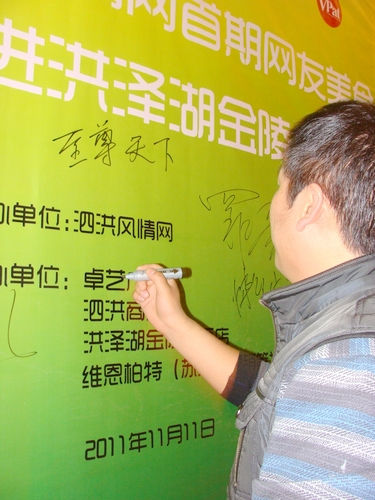 VPal
网首期网友美食
进洪泽湖金陵
至尊天下
办单位:泗洪风情网
办单位:卓艺
泗洪商
洪泽湖金陵 店
维恩柏特(苏
2011年11月11日